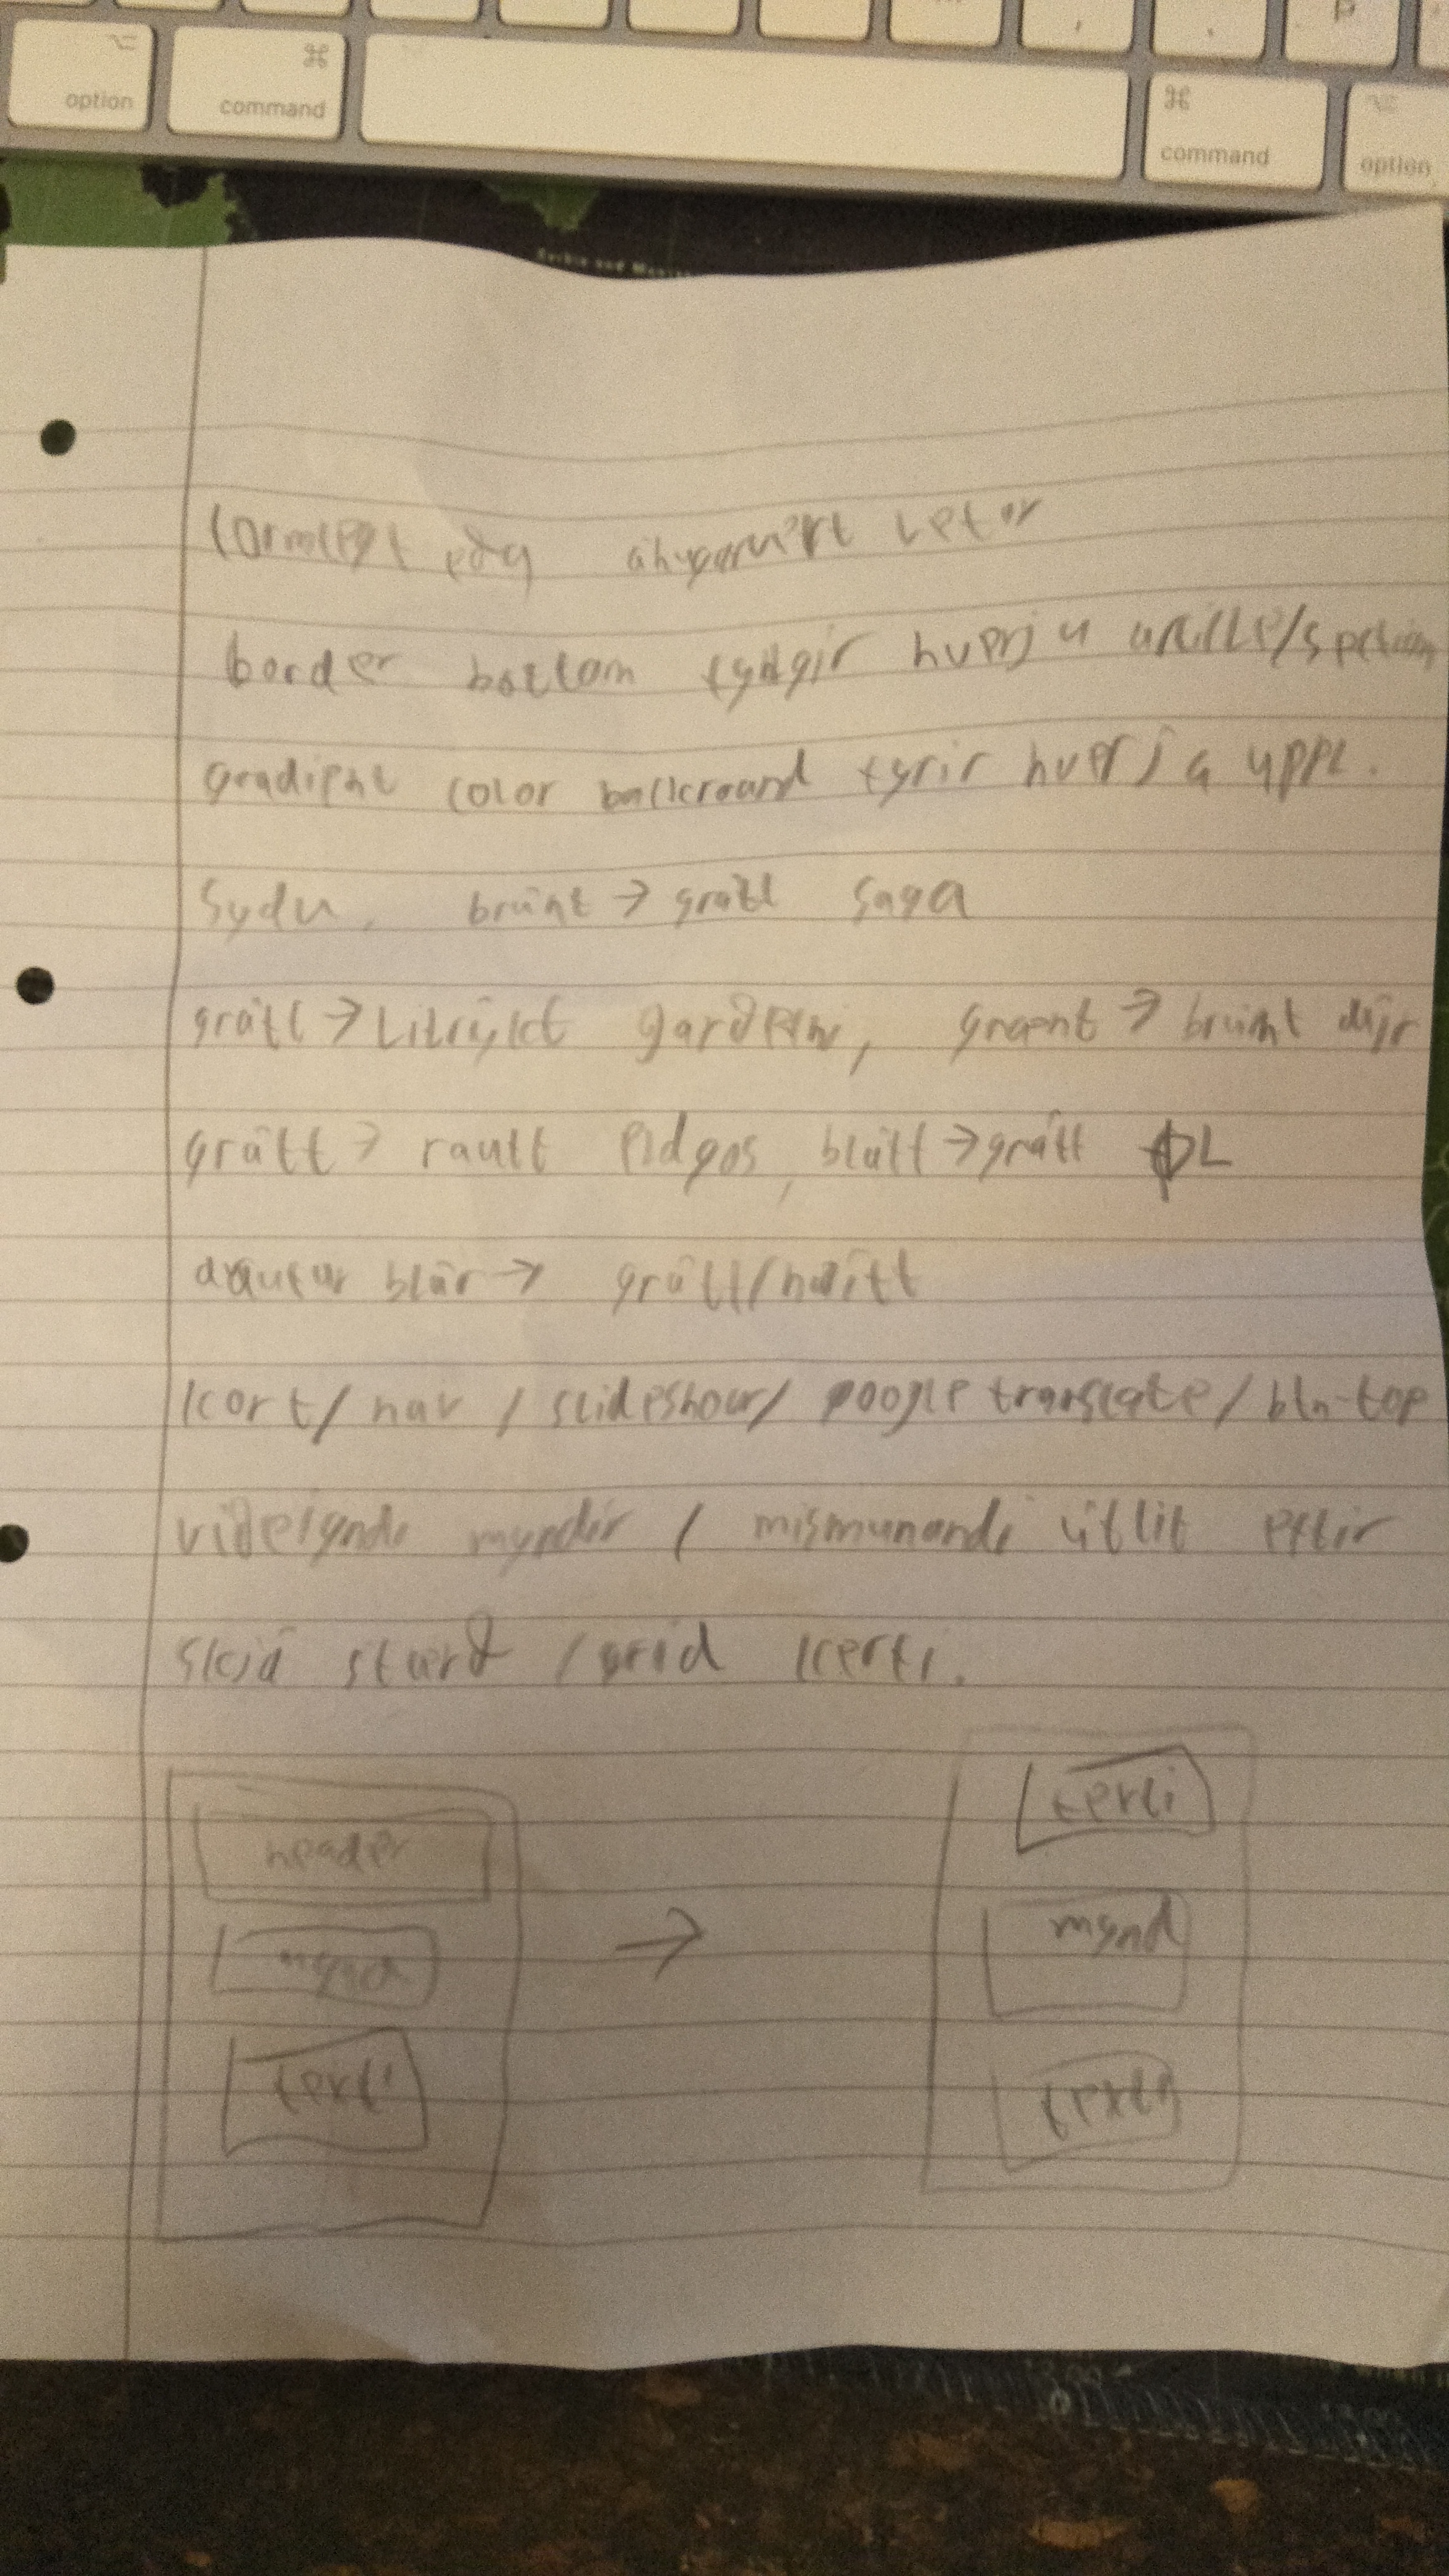 option command command option
P
formlegt eða áhugavert letur
border bottom fyrir hverju article/section
gradient color backround fyrir hverja uppl.
Síðu, brúnt → grátt saga
grátt → Litríkt garðurin, grænt → brúnt dýr
grátt → rautt Eldgos, blátt → grátt ÞL
blár → grátt/hvítt
kort / nav / slideshow / google translate / btn-top
viðeigandi myndir / mismunandi útlit eftir
skjá stærð / grid kerfi.
header
mynd
texti
→
texti
mynd
texti